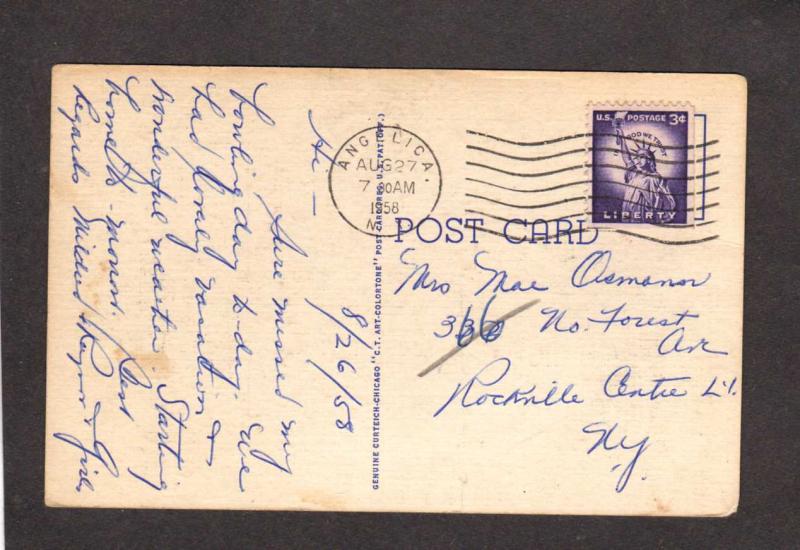 8/26/58
Hi —
Sure missed my
bowling day to-day. We
had lovely vacation &
wonderful weather. Starting
home to-morrow. Best
Regards Mildred & Girls
GENUINE CURTEICH-CHICAGO "C.T. ART-COLORTONE" POST CARD (REG. U.S. PAT. OFF.)
ANGELICA
AUG 27
7 AM
1958
N.
U.S. POSTAGE 3¢
IN GOD WE TRUST
LIBERTY
POST CARD
Mrs Mae Osmanor
No. Forest
Ave
Rockville Centre L.I.
N.y.